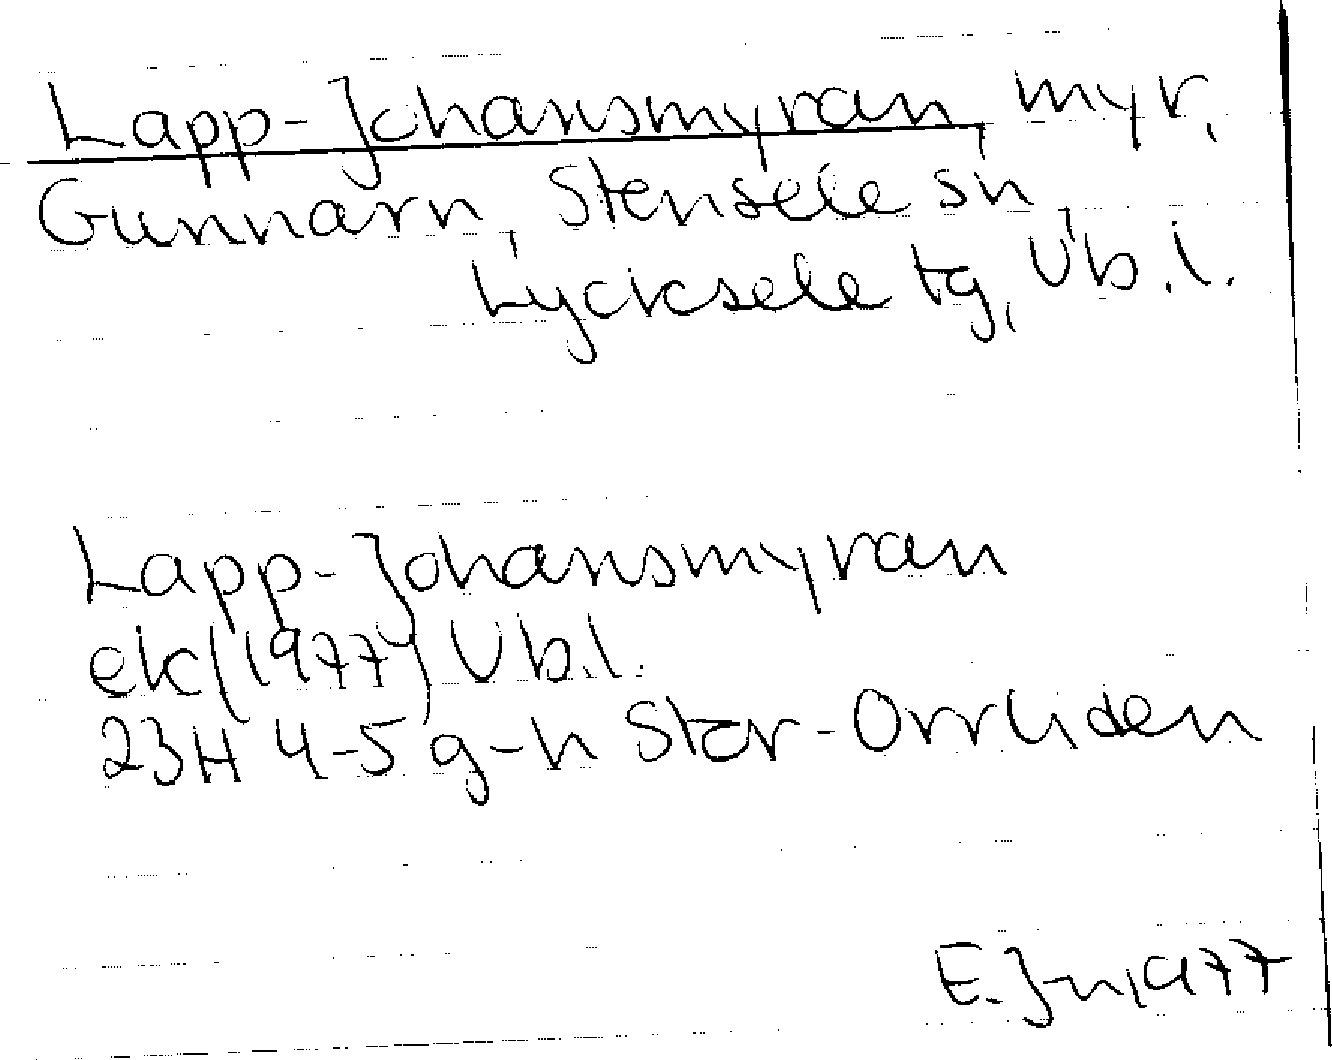 Lapp-Johansmyran, myr,
Gunnarn, Stensele sn,
Lycksele tg, Vb.l.
Lapp-Johansmyran
ek (1977) Vb.l.
23H 4-5 g-h Stor-Orrliden
E. J-n, 1977